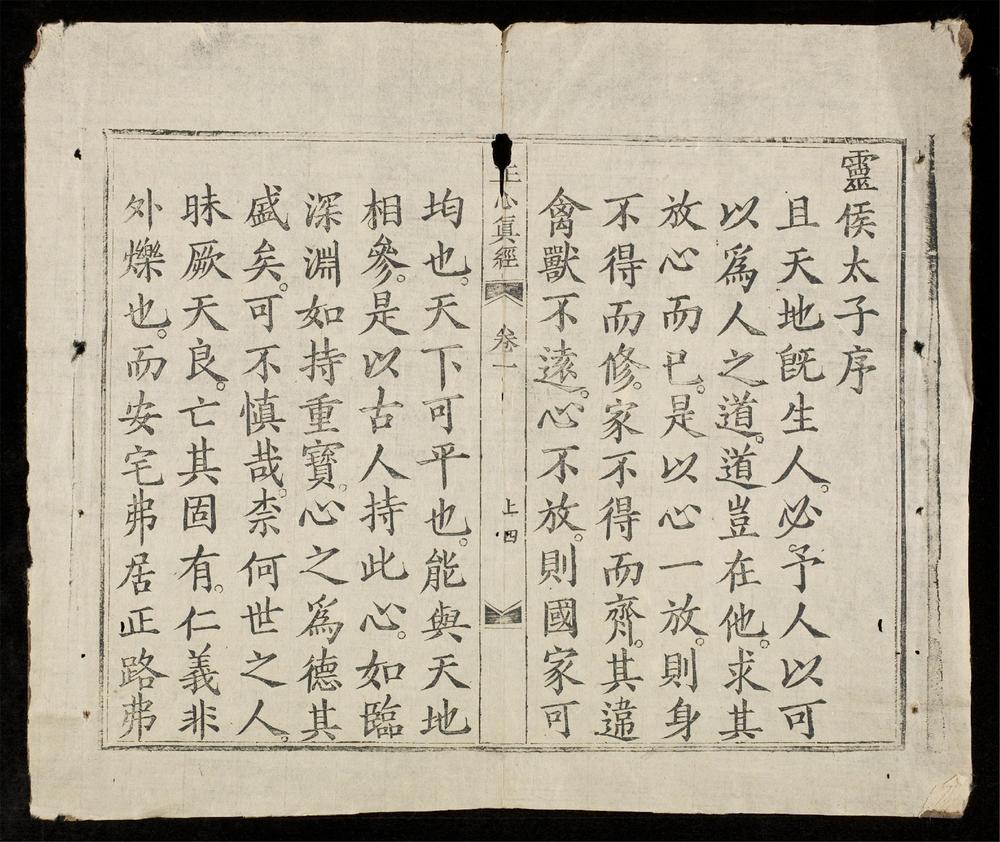 靈侯太子序
且天地旣生人。必予人以可
以爲人之道。道豈在他。求其
放心而已。是以心一放。則身
不得而修。家不得而齊。其違
禽獸不遠。心不放。則國家可
正心眞經 卷一 上四
均也。天下可平也。能與天地
相參。是以古人持此心。如臨
深淵如持重寶。心之爲德其
盛矣。可不慎哉。柰何世之人。
昧厥天良。亡其固有。仁義非
外爍也。而安宅弗居正路弗